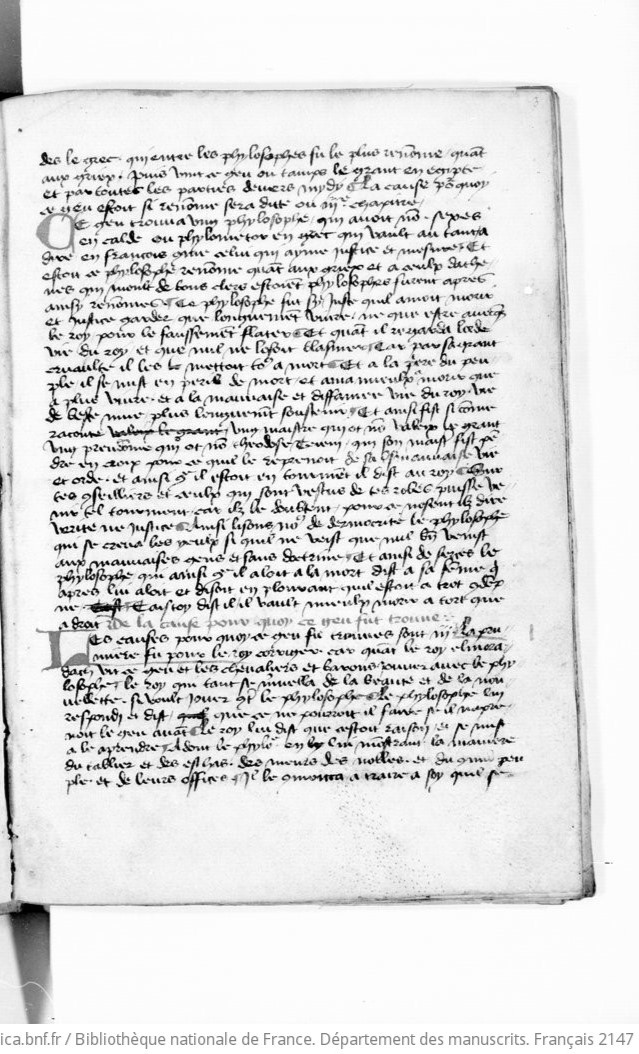 des le grec · qui entre les phylosophes fu le plus renōme · quāt
aux griex · puis vint ce geu ou tamps le grant en egipte
et par toutes les parties devers mydy La cause pq̄ quoy
ce geu estoit si renōme sera dite ou iijᵉ chapitre ·
Ce geu trouva vng phylosophe · qui avoit nō · sexes
en calde ou phylometor en grec qui vault autant a
dire en francois q̄me celui qui ayme justice et mesure Et
estoit ce phylosophe renōme quāt aux griex et a ceulx dathe
nes qui moult de bons clers estoiēt phylosophes furent apres
ainsy renōmes Ce phylosophe fut sy juste quil amoit morir
et justice garder que longuement vivre · ne que estre avecq̄s
le roy pour le faussement flater Et quāt il regarda lorde
vie du roy et que nul ne losoit blasmer Car par sa grant
cruaulte il les mettoit toˢ a mort Et a la p̄ere du peu
ple il se mist en peril de mort et ama mieulx morir que
a plus vivre · et a la mauvaise et diffamee vie du roy · vie
de beste mue plus longuemt soustenir Et ainsi fist si cōme
raconte vng maistre qui ot nō valere le grant
vng preudōme qui ot nō theodore Ciren qui son maist fist pē
dre en croix pour ce quil le reprenoit de sa mauvaise vie
et orde · et ainsi q̄ il estoit en tourmēt il dist au roy Sur
tes q̄seilliers et ceulx qui sont vestus de tes robes puisse ve
nir tel tourment car ilz te doubtent · pour ce nosent ilz dire
verite ne justice Ainsi lisons noˢ de democrite le phylosophe
qui se creva les yeulx si quil ne veist que nul bn̄ venist
aux mauvaises gens et sans doctrine Et ainsi de sexes le
phylosophe qui ainsi q̄ il aloit a la mort dist a sa fēme q̄
apres lui aloit et disoit en plourant quil estoit a tort q̄dēp
ne · Tais toy dist il il vault mieulx morir a tort que
a droit De la cause pour quoy ce geu fut trouve
Les causes pour quoy ce geu fu trouves sont iij La pre
miere fu pour le roy corrigier car quāt le roy elmora
dach vit ce geu et les chevaliers et barons jouer avec le phy
losophe le roy qui tant se m̄veilla de la beaute et de la nou
vellete · si voult jouer q̄t̄ le phylosophe Le phylosophe lui
respondi et dist que ce ne pouroit il faire se il napre
noit le geu avāt Le roy lui dist que cestoit raison et se mist
a le aprendre Adont le phylo᷒ en lui mostrant la maniere
du tablier et des eschas · des meurs des nobles · et du q̄mū peu
ple · et de leurs offices Il le q̄menca a traire a soy quil se
ica.bnf.fr / Bibliothèque nationale de France. Département des manuscrits. Français 2147